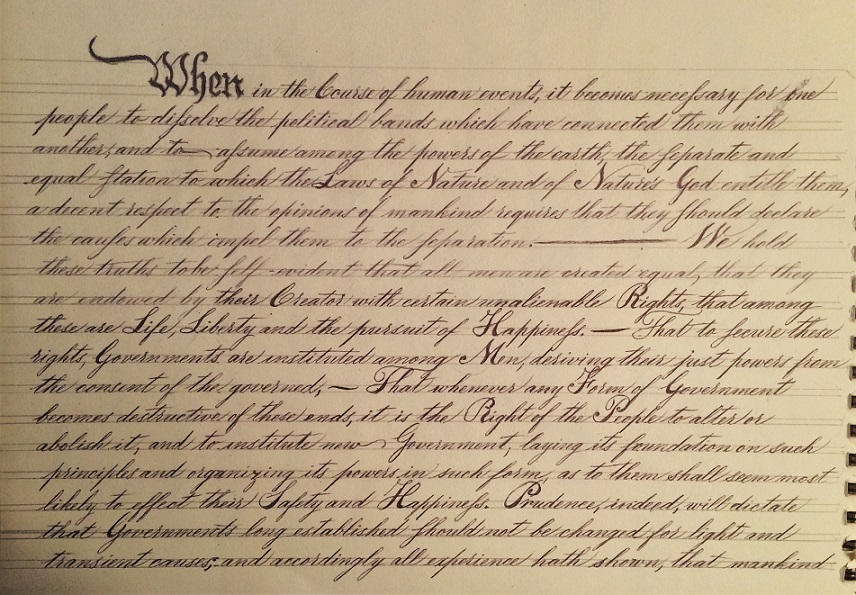 When in the Course of human events, it becomes neceſsary for one
people to diſsolve the political bands which have connected them with
another, and to aſsume among the powers of the earth, the ſeparate and
equal ſtation to which the Laws of Nature and of Nature's God entitle them,
a decent respect to the opinions of mankind requires that they ſhould declare
the cauſes which impel them to the ſeparation. — We hold
these truths to be ſelf-evident that all men are created equal, that they
are endowed by their Creator with certain unalienable Rights, that among
these are Life, Liberty and the pursuit of Happineſs. — That to ſecure these
rights, Governments are instituted among Men, deriving their just powers from
the consent of the governed, — That whenever any Form of Government
becomes destructive of these ends, it is the Right of the People to alter or
abolish it, and to institute new Government, laying its foundation on such
principles and organizing its powers in such form, as to them shall seem most
likely to effect their Safety and Happineſs. Prudence, indeed, will dictate
that Governments long established ſhould not be changed for light and
transient causes; and accordingly all experience hath shown, that mankind